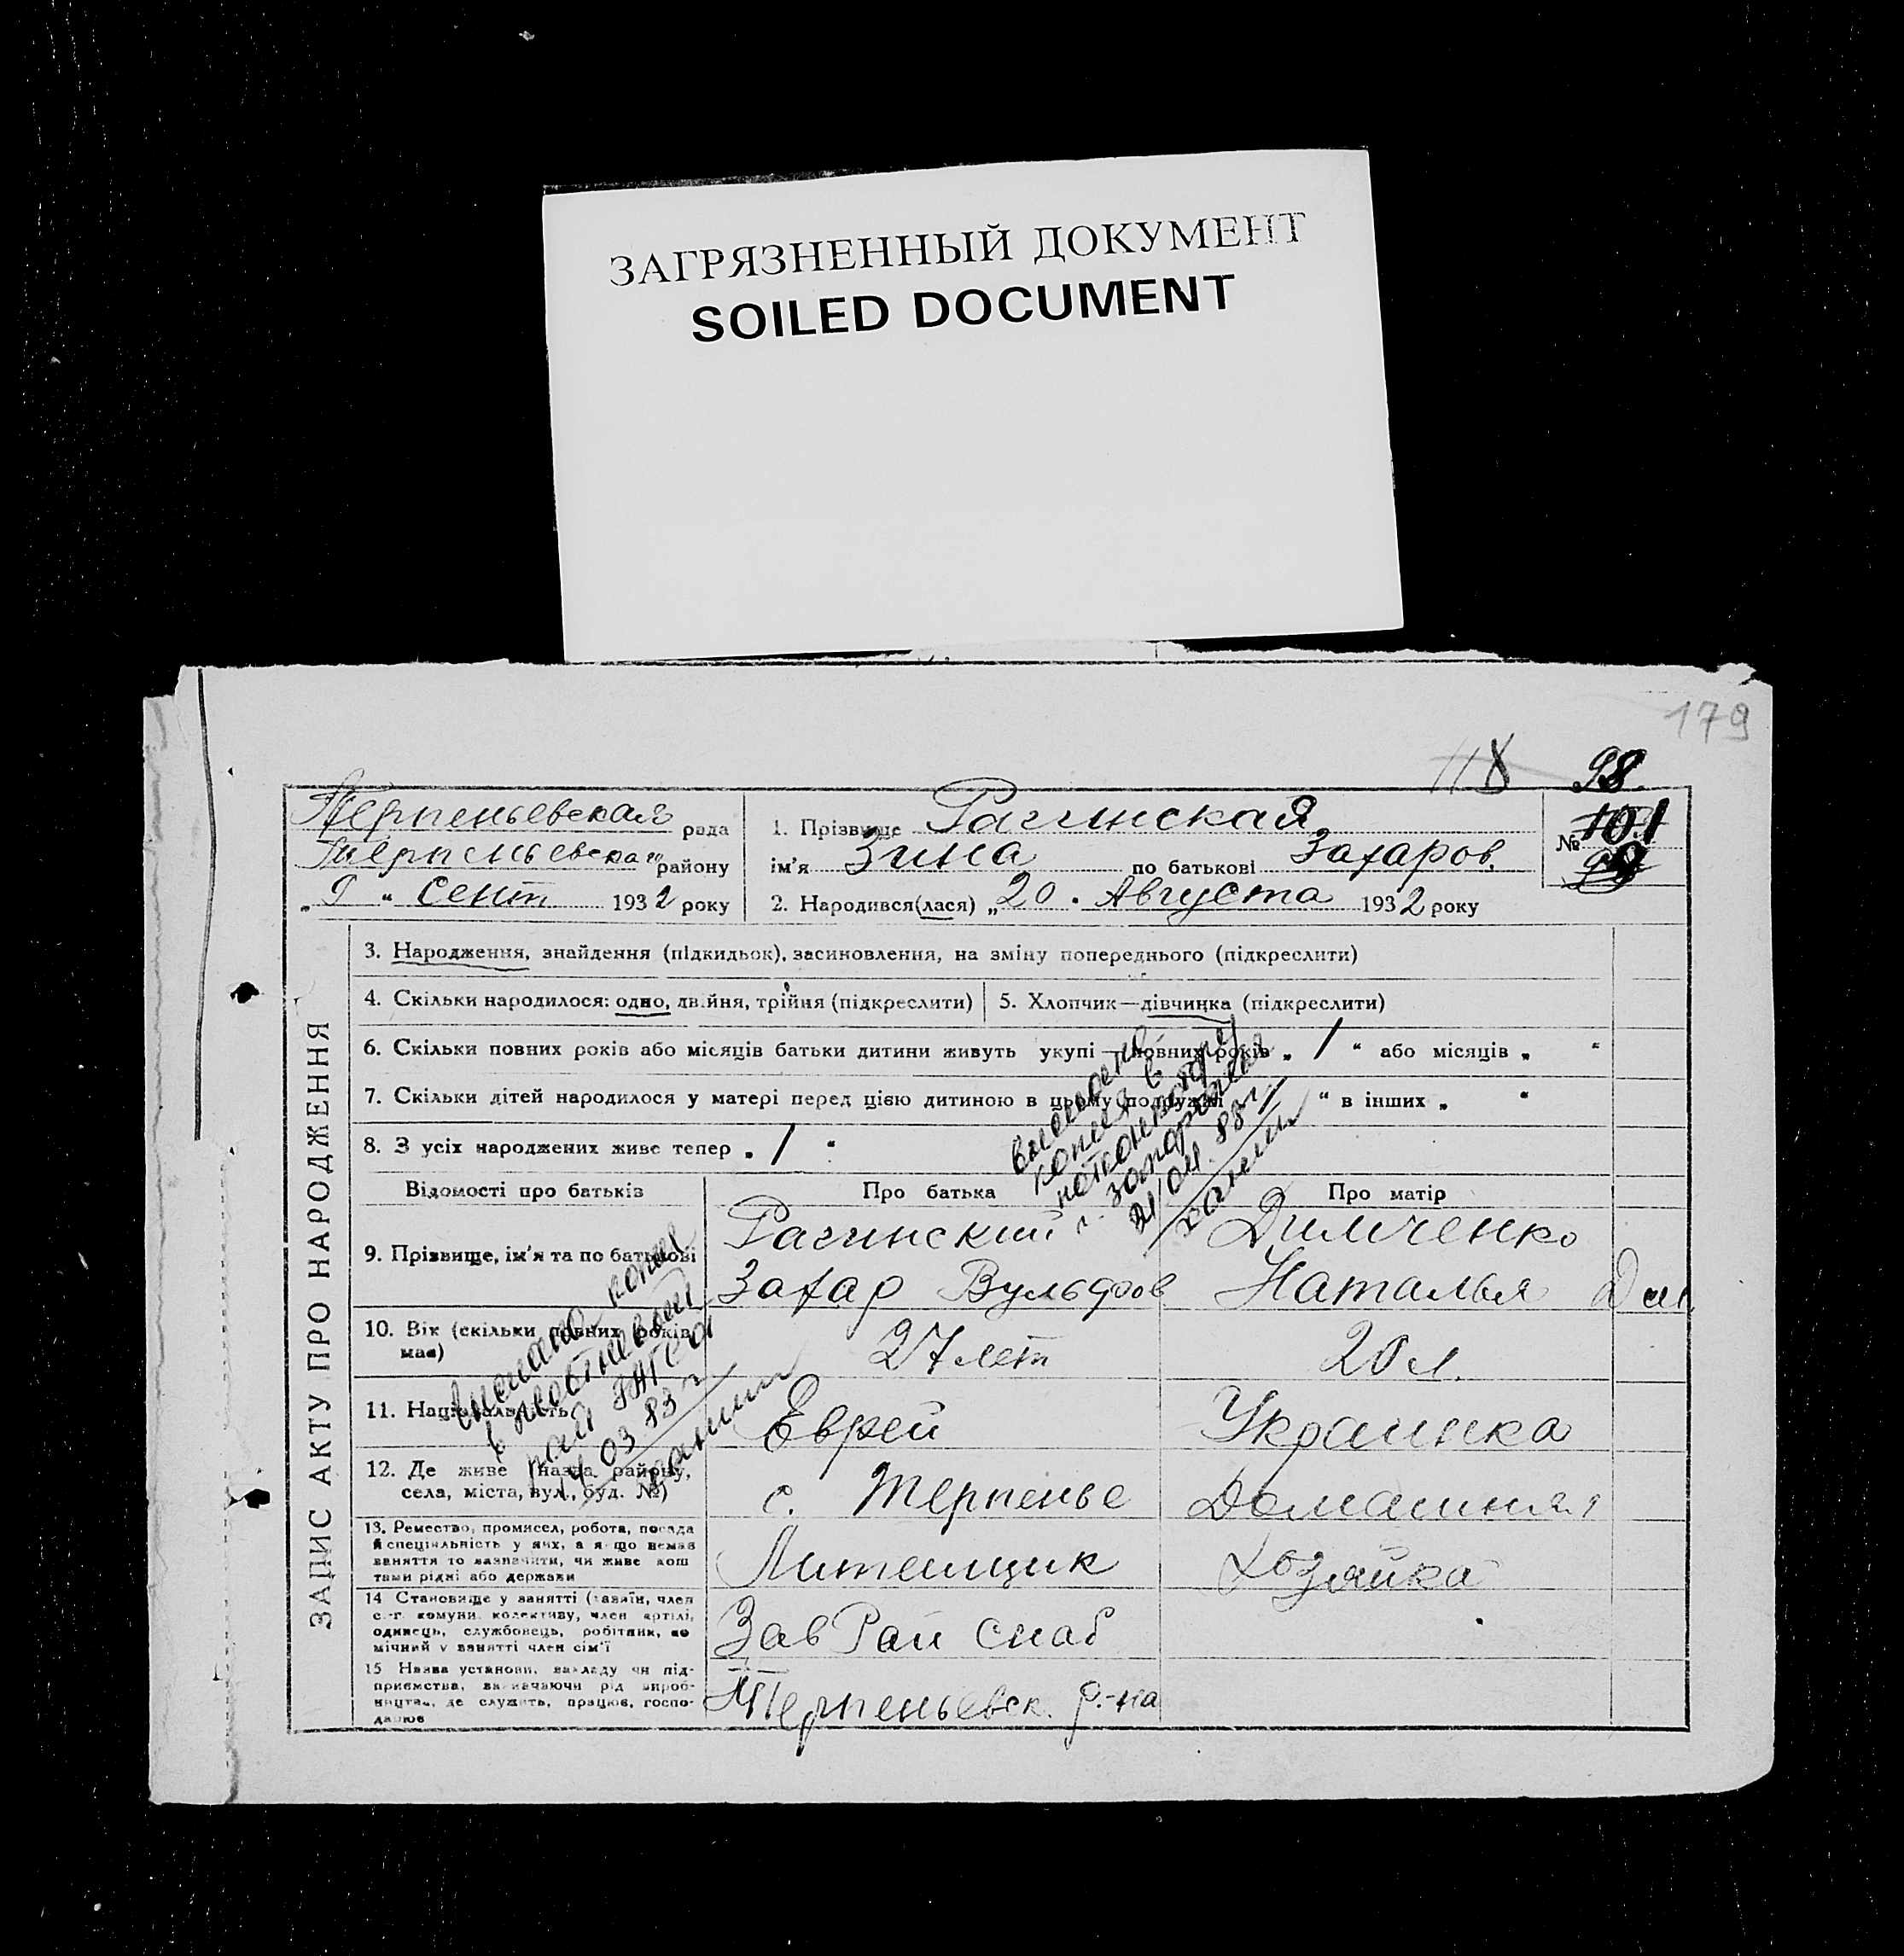 ЗАГРЯЗНЕННЫЙ ДОКУМЕНТ
SOILED DOCUMENT
179
118 98
Терпеньевская рада
Терпеньевская району
„ 9 “ Сент 1932 року
1. Прізвище Рагинская
ім'я Зина по батькові Захаров.
2. Народився(лася) „20 . Августа 1932 року
№ 101
99
ЗАПИС АКТУ ПРО НАРОДЖЕННЯ
3. Народження, знайдення (підкидьок), засиновлення, на зміну попереднього (підкреслити)
4. Скільки народилося: одно, двійня, трійня (підкреслити) 5. Хлопчик—дівчинка (підкреслити)
6. Скільки повних років або місяців батьки дитини живуть укупі — повних років „ 1 “ або місяців „ “
7. Скільки дітей народилося у матері перед цією дитиною в цьому подружжі “ в інших „ “
8. З усіх народжених живе тепер „ 1 “
копия в
г. Запорожья
21/04 83 г
Відомості про батьків Про батька Про матір
9. Прізвище, ім'я та по батькові
Рагинский Димченко
Захар Вульфов Наталья Дан
10. Вік (скільки повних років має)
27 лет 20 л.
копия
рай ЗАГСа
14 03 83 г
11. Національність Еврей Украинка
12. Де живе (назва району,
села, міста, вул., буд. №)
с. Терпенье Домашняя
13. Ремество, промисел, робота, посада
й спеціяльність у них, а якщо немає
заняття то зазначити, чи живе кош
тами рідні або держави
Литейщик Хозяйка
14 Становище у занятті (хазяїн, член
с.-г. комуни, колективу, член артілі,
одинець, службовець, робітник, по
мічний у занятті член сім'ї
Зав Рай Снаб
15 Назва установи, закладу чи під-
приємства, визначаючи рід вироб-
ництва, де служить, працює, госпо-
дарює
Терпеньевск. р-на